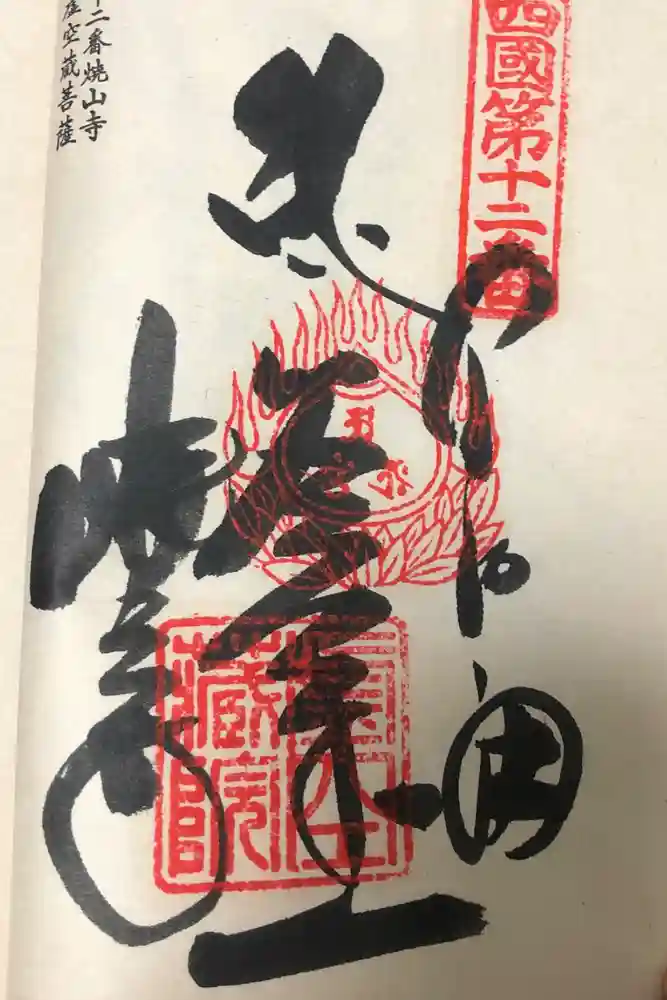 四國第十二番
奉納
虚空蔵
虚空
藏院
焼山寺
十二番焼山寺
虚空蔵菩薩